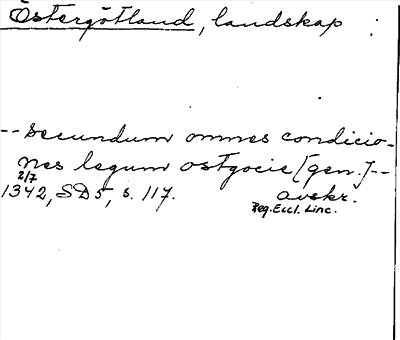 Östergötland, landskap
-- secundum omnes condicio-
nes legum ostgocie [gen.] --
2/7
1342, SD 5, s. 117. avskr.
Reg. Eccl. Linc.